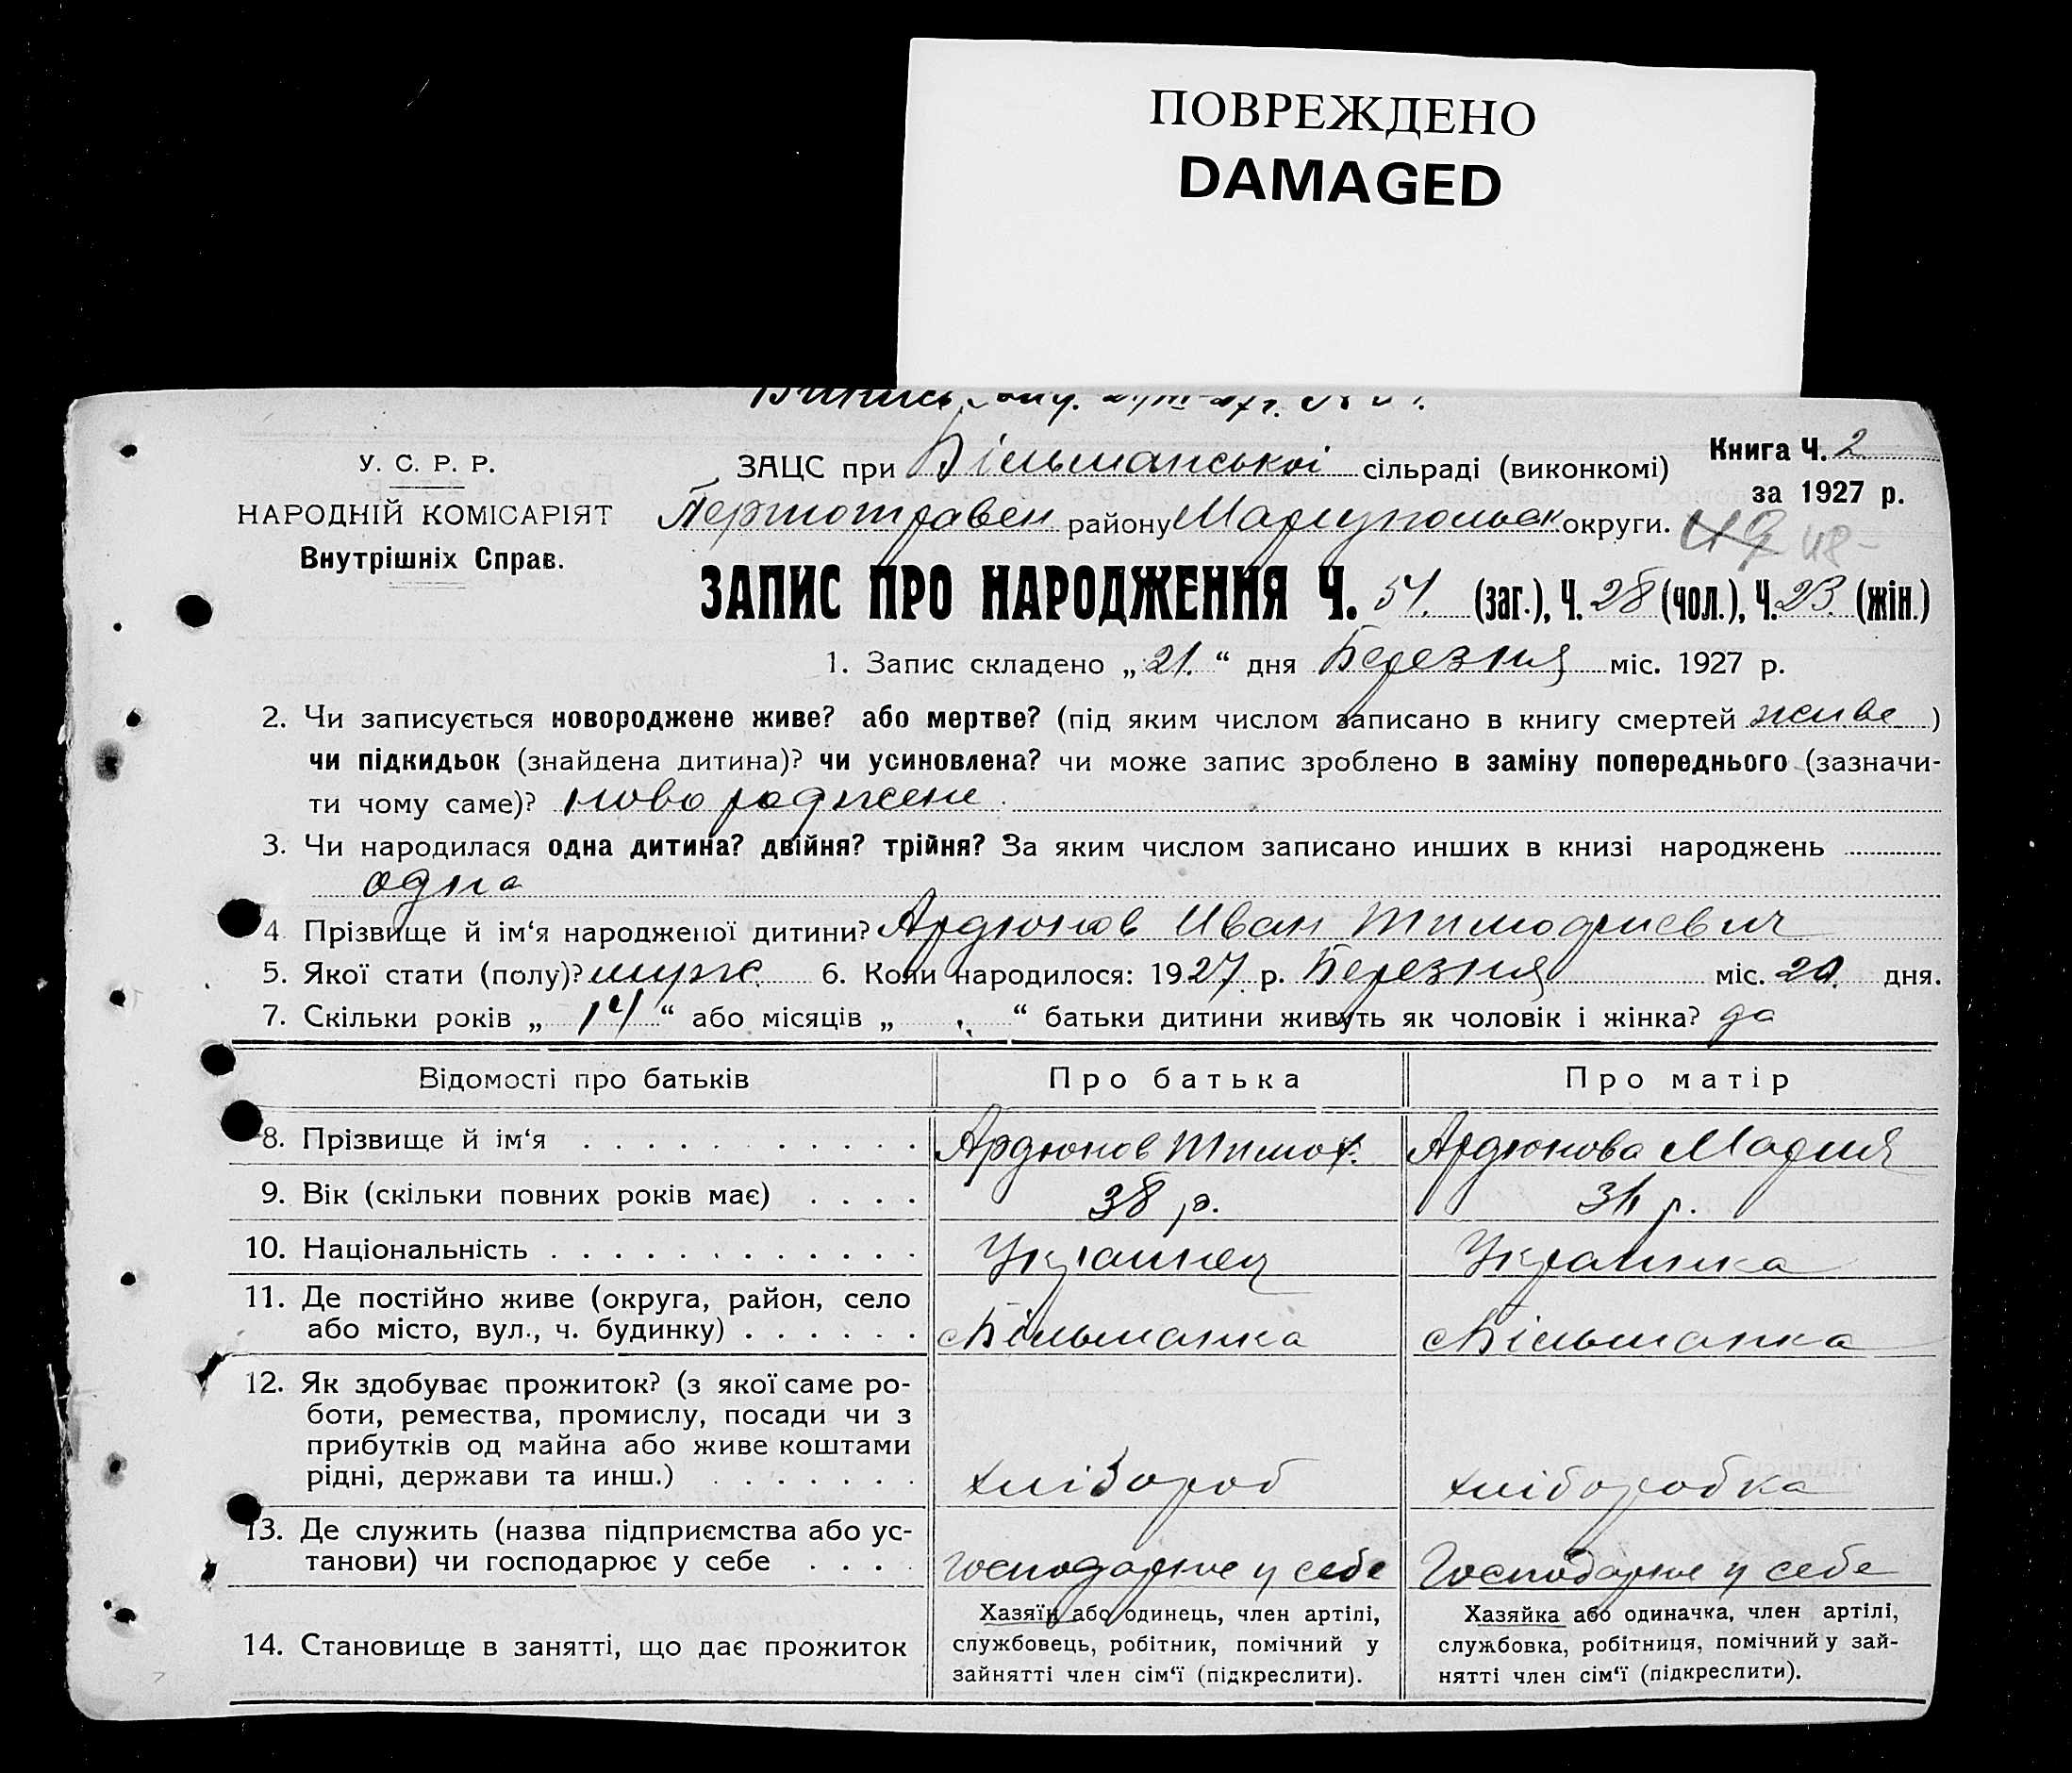 ПОВРЕЖДЕНО
DAMAGED
У. С. Р. Р.
НАРОДНІЙ КОМІСАРІЯТ
Внутрішніх Справ.
Книга Ч. 2
за 1927 р.
ЗАЦС при Більманській сільраді (виконкомі)
Першотравен району Маріупольськ округи.
48
ЗАПИС ПРО НАРОДЖЕННЯ Ч. 51. (заг.), Ч. 28 (чол.), Ч. 23. (жін.)
1. Запис складено „21.“ дня Березня міс. 1927 р.
2. Чи записується новороджене живе? або мертве? (під яким числом записано в книгу смертей живе )
чи підкидьок (знайдена дитина)? чи усиновлена? чи може запис зроблено в заміну попереднього (зазначи-
ти чому саме)? новороджене.
3. Чи народилася одна дитина? двійня? трійня? За яким числом записано инших в книзі народжень
одна
4 Прізвище й ім‘я народженої дитини? Ардюков Иван Тимофиевич
5. Якої стати (полу)? муж. 6. Коли народилося: 1927. р. Березня міс. 20. дня.
7. Скільки років „ 14 “ або місяців „ “ батьки дитини живуть як чоловік і жінка? да
Відомості про батьків
Про батька
Про матір
8. Прізвище й ім‘я
Ардюков Тимоф.
Ардюкова Мария
9. Вік (скільки повних років має)
38 р.
34 р.
10. Національність
Украинец
Украинка
11. Де постійно живе (округа, район, село
або місто, вул., ч. будинку)
с Більманка
с Більманка
12. Як здобуває прожиток? (з якої саме ро-
боти, ремества, промислу, посади чи з
прибутків од майна або живе коштами
рідні, держави та инш.)
хлібороб
хліборобка
13. Де служить (назва підприємства або ус-
танови) чи господарює у себе
господарює у себе
Господарює у себе
14. Становище в занятті, що дає прожиток
Хазяїн або одинець, член артілі,
службовець, робітник, помічний у
зайнятті член сім‘ї (підкреслити).
Хазяйка або одиначка, член артілі,
службовка, робітниця, помічний у зай-
нятті член сім‘ї (підкреслити).